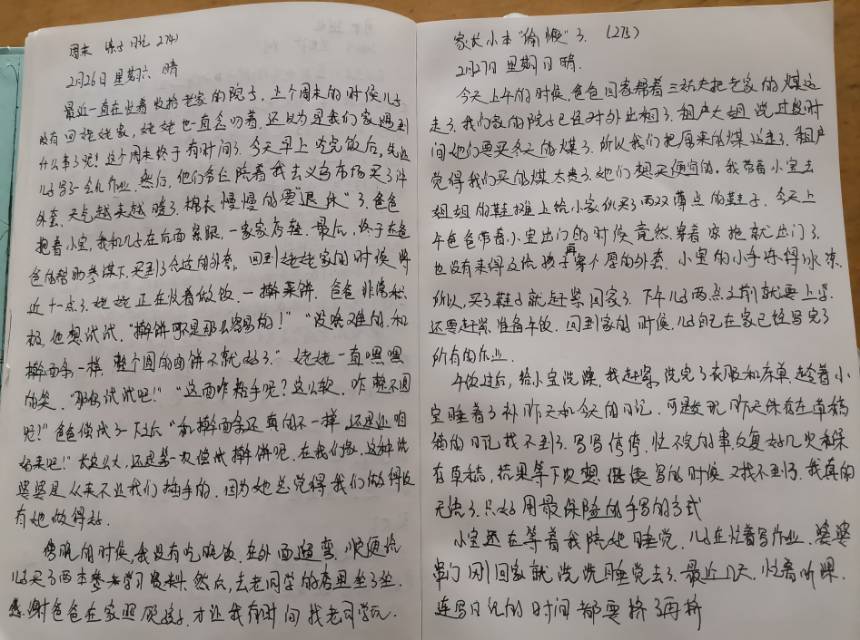 周末 练字 日记 274)
2月26日 星期六 晴
最近一直在忙着收拾老家的院子，上个周末的时候儿子
没有回姥姥家，姥姥也一直念叨着，还以为是我们家遇到
什么事了呢！这个周末终于有时间了，今天早上吃完饭后，先让
儿子写了一会儿作业，然后，他们爷仨陪着我去义乌市场买了件
外套，天气越来越暖了，棉衣慢慢的要"退休"了，爸爸
抱着小宝，我和儿子在后面紧跟，一家家店挑，最后，终于在爸
爸的帮助参谋下，买到了合适的外套。回到姥姥家的时候将
近十一点了，姥姥正在忙着做饭，一擀菜饼，爸爸非常积
极，他想试试，"擀饼可不是那么容易的！""没啥难的，和
擀面条一样，整个圆的面饼不就好了。"姥姥一直嘿嘿
的笑，"那你试试吧！""这面咋粘手呢？这么软，咋整不圆
呢？"爸爸尝试了一下后"和擀面条还真的不一样，还是让咱
妈来吧！"长这么大，还是第一次尝试擀饼呢，在我们家，这种活
婆婆是从来不让我们插手的，因为她总觉得我们做得没
有她做得好。
傍晚的时候，我没有吃晚饭，在外面遛弯，顺便给
儿子买了两本参学习资料，然后，去老同学的店里坐了坐，
感谢爸爸在家照顾孩子，才让我有时间找老同学玩。
家长小本"偷懒"了 (275)
2月27日 星期日 晴
今天上午的时候，爸爸回老家帮着三姑夫把老家的煤运
走了，我们家的院子已经对外出租了，租户大姐说过段时
间他们要买冬天的煤了，所以我们把原来的煤运走了，租户
觉得我们买的煤太贵了，她们想买便宜的。我带着小宝去
姐姐的鞋摊上给小家伙买了两双薄点的鞋子，今天上
午爸爸带着小宝出门的时候竟然穿着凉拖就出门了，
也没有来得及给孩子再穿个厚的外套，小宝的小手冻得冰凉，
所以，买了鞋子就赶紧回家了，下午儿子两点之前就要上学，
还要赶紧准备午饭，回到家的时候，儿子自己在家已经写完了
所有的作业。
午饭过后，给小宝洗澡，我赶紧洗完了衣服和床单，趁着小
宝睡着了补昨天和今天的日记，可是发现昨天保存在草稿
箱的日记找不到了，写写停停，忙不完的事，反复好几次都保
存草稿，结果等下次想继续写的时候又找不到了，我真的
无语了，只好用最保险的手写的方式
小宝还在等着我陪她睡觉，儿子在忙着写作业，婆婆
串门刚回家就洗洗睡觉去了，最近几天，忙着听课，
连写日记的时间都要挤了再挤